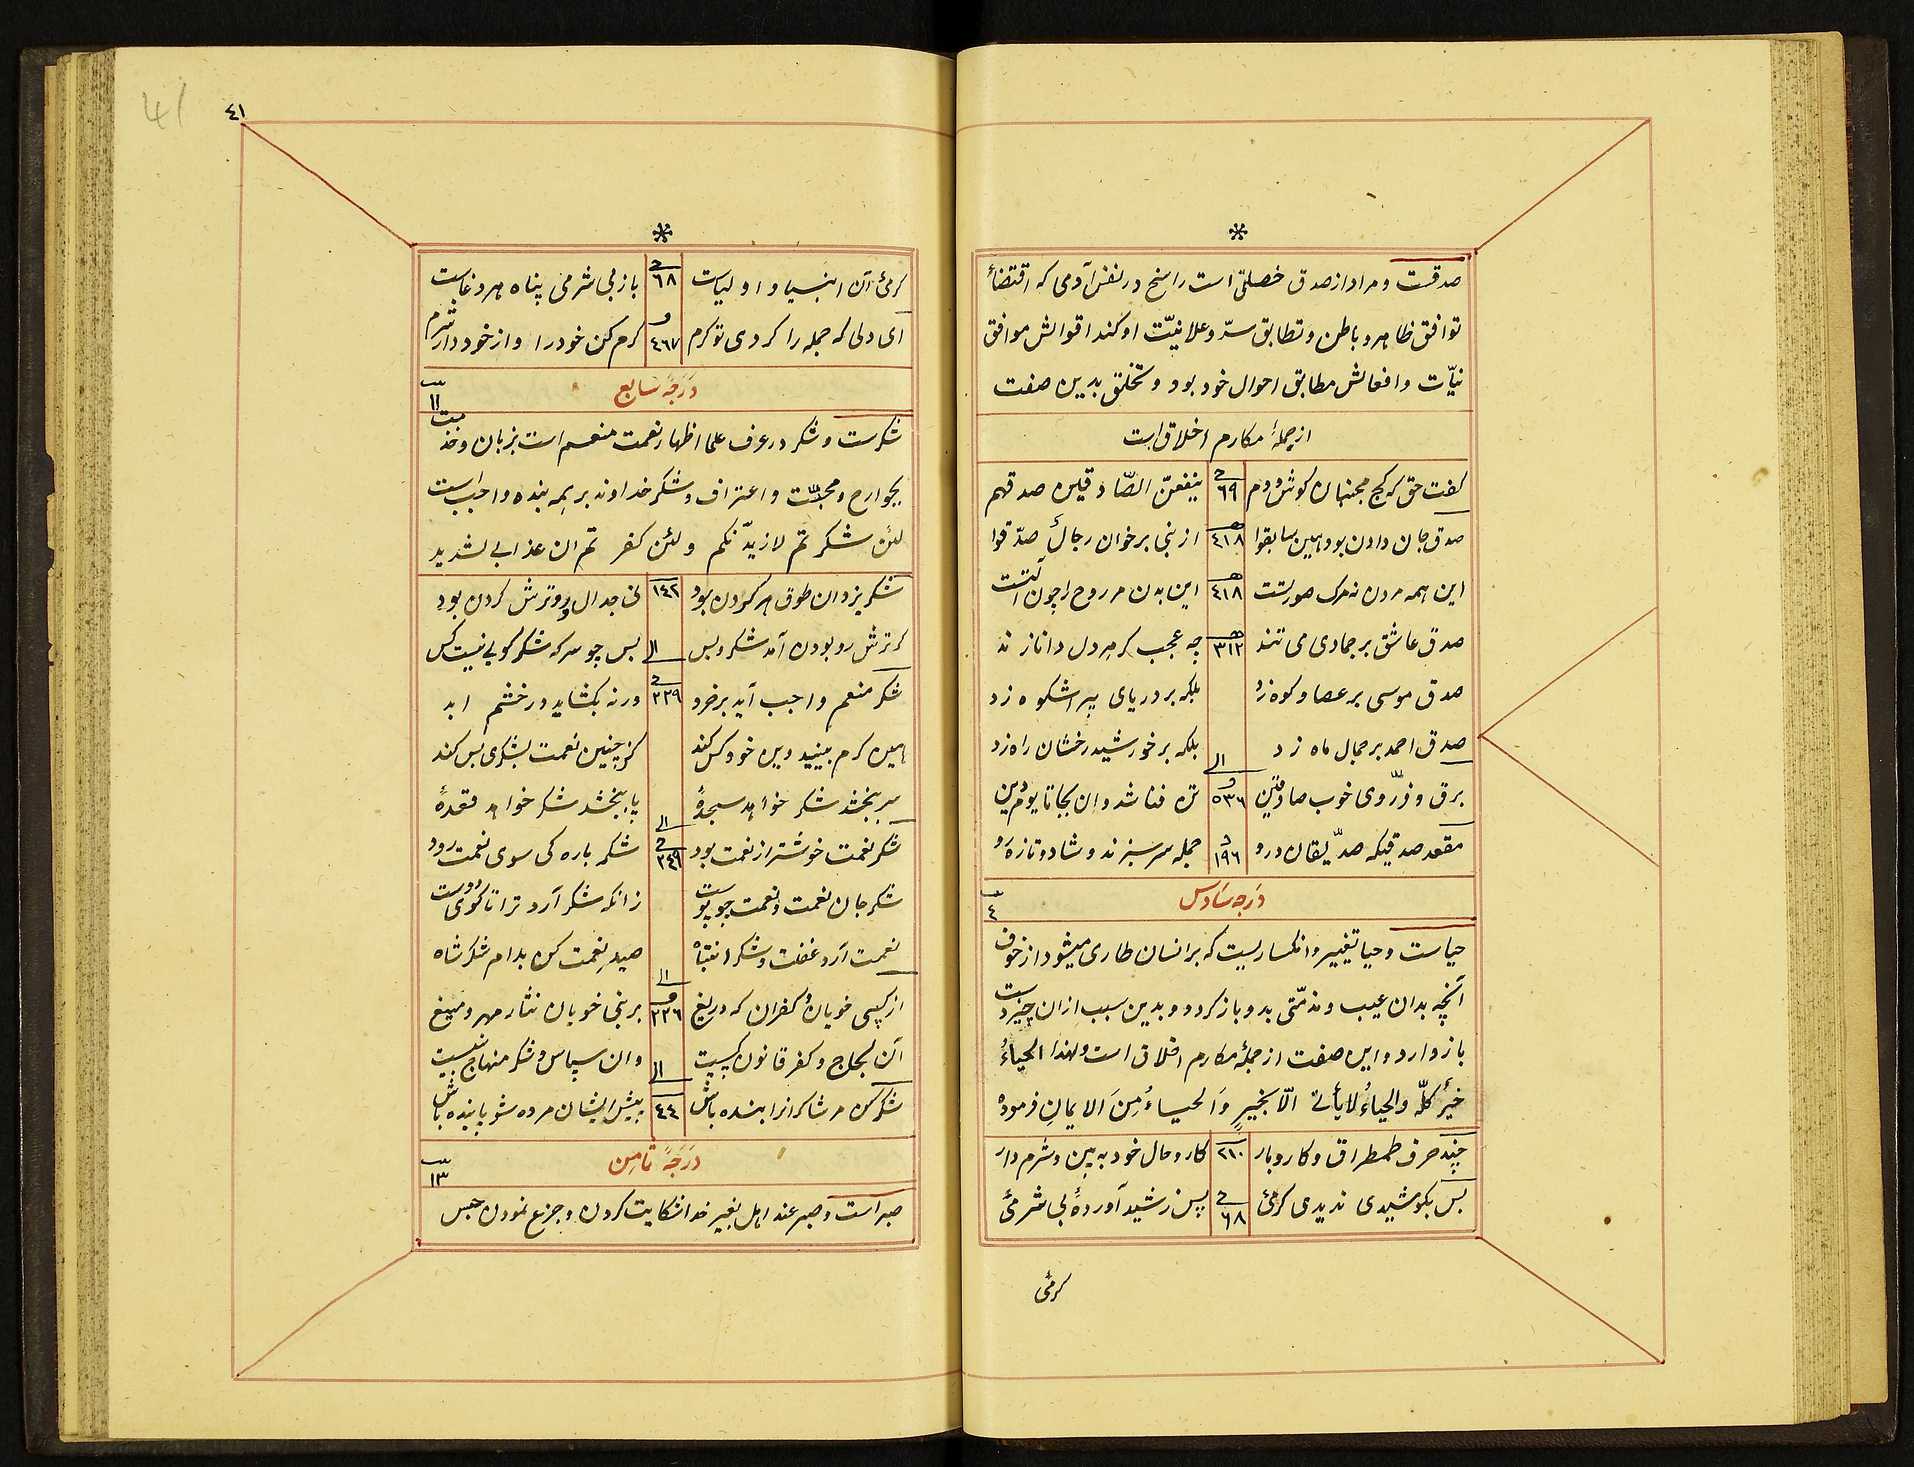 صدقست و مراد از صدق خصلتی است راسخ در نفس آدمی که اقتضاء
توافق ظاهر و باطن و تطابق سرّ و علانیّت او کند اقوالش موافق
نیّات و افعالش مطابق احوال خود بود و تخلق بدین صفت
از جملۀ مکارم اخلاق است
گفت حق که کج مجنبان گوش و دم ح ٦٩ ینفعنّ الصّادقین صدقهم
صدق جان دادن بود هین سابقوا ٤١٨ از نبی برخوان رجالٌ صدّقوا
این همه مردن نه مرگ صورتست ٤١٨ این بدن مر روح را چون آلتست
صدق عاشق بر جمادی می تند ٣١٢ چه عجب گر بر دل دانا زند
صدق موسی بر عصا و کوه زد بلکه بر دریای پر اشکوه زد
صدق احمد بر جمال ماه زد الی بلکه بر خورشید رخشان راه زد
برق و فرّ روی خوب صادقین و ٥٣٦ نه فنا شد وان بجا تا یوم دین
مقعد صدقیکه صدّیقان درو و ١٩٦ جمله سرسبزند و شاد و تازه رو
درجه سادس
٤
حیاست و حیا تغییر و انکساریست که بر انسان طاری میشود از خوف
آنچه بدان عیب و مذمّتی بدو بازگردد و بدین سبب از ان چیز دست
باز دارد و این صفت از جملۀ مکارم اخلاق است ولهذا الحیاءُ
خیرٌ کلّه والحیاءُ لا یأتی الّا بخیرٍ وَالحیاءُ مِنَ الایمانِ فرموده
چند حرف طمطراق و کار و بار ٢١٠ کار و حال خود به بین و شرم دار
بس بکوشیدی ندیدی گرمئی ح ٦٨ پس ز رشید آوردۀ بی شرمئی
گرمئی
٤١
41
گرمئ آن انبیا و اولیاست ح ٦٨ باز بی شرمی پناه هر دغاست
ای دلی که جمله را کردی تو گرم و ٤٦٧ گرم کن خود را و از خود دار شرم
درجۀ سابع
١١
شکرست و شکر در عرف علما اظهار نعمت منعم است بزبان و خدمت
بجوارح و محبّت و اعتراف و شکر خداوند بر همه بنده واجب است
لئن شکرتم لازیدنّکم و لئن کفرتم ان عذابی لشدید
شکر یزدان طوق هر گردن بود ١٤٢ نی جدال و رو ترش کردن بود
گر ترش رو بودن آمد شکر و بس الی پس چو سرکه شکر گویی نیست کس
شکر منعم واجب آید بر خرد ح ٢٣٩ ورنه بگشاید در خشم ابد
هین کرم بینید وین خود کس کند کز چنین نعمت بشکری بس کند
سر ببخشد شکر خواهد سجدۀ الی پا ببخشد شکر خواهد قعدۀ
شکر نعمت خوشتر از نعمت بود ح ٢٤٩ شکر باره کی سوی نعمت رود
شکر جان نعمت و نعمت چو پوست زانکه شکر آرد ترا تا کوی دوست
نعمت آرد غفلت و شکر انتباه الی صید نعمت کن بدام شکر شاه
از کپی خویان کفران که دریغ و ٢٢٦ بر نبی خویان نثار مهر و میغ
آن لجاج و کفر قانون کپیست الی وان سپاس و شکر منهاج نبیست
شکر کن مر شاکرانرا بنده باش ٤٤ پیش ایشان مرده شو پاینده باش
درجۀ ثامن
١٣
صبر است و صبر عند اهل بغیر خدا شکایت کردن و جزع نمودن حبس